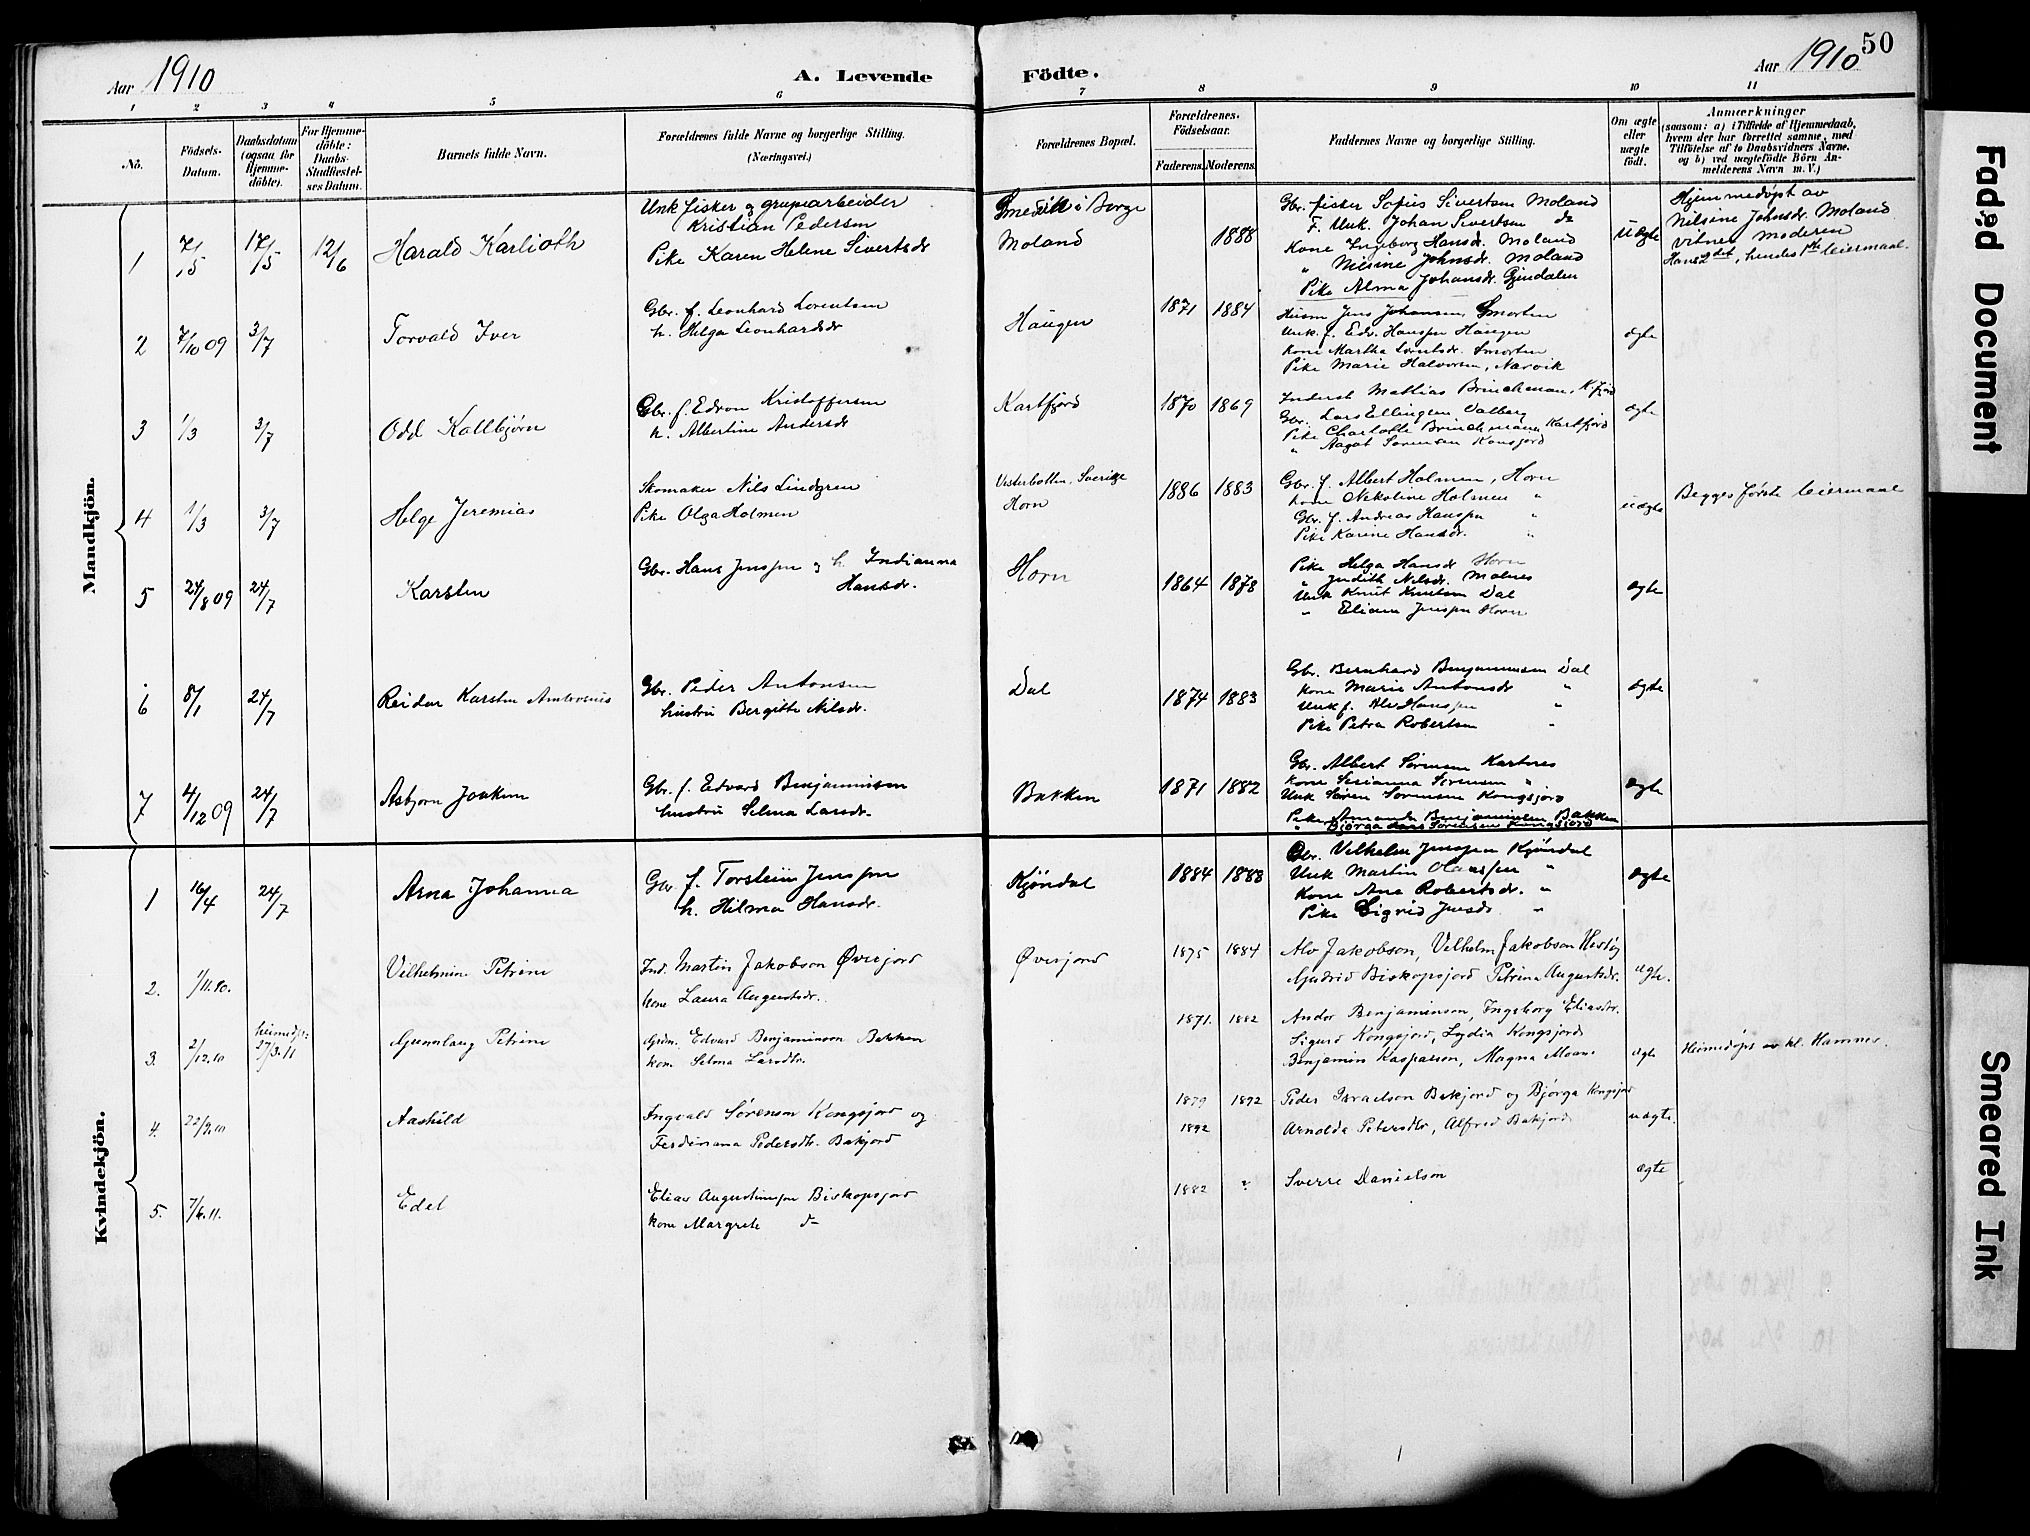 50
Aar 1910
A. Levende
Födte.
Aar 1910
1 2 3 4 5 6 7 8 9 10 11
No.
Födsels-Datum.
Daabsdatum (ogsaa for Hjemme-döbte).
For Hjemme-döbte: Daabs-Stadfæstel-ses Datum.
Barnets fulde Navn.
Forældrenes fulde Navne og borgerlige Stilling.
(Næringsvei.)
Forældrenes Bopæl.
Forældrenes Födselsaar.
Faderens. Moderens.
Faddernes Navne og borgerlige Stilling.
Om ægte eller uægte födt.
Anmærkninger
(saasom: a) i Tilfælde af Hjemmedaab, hvem der har forrettet samme, med Tilföielse af to Daabsvidners Navne, og b) ved uægtefödte Börn An-melderens Navn m. V.)
Mandkjön.
1 7/15 17/5 12/6 Harald Karlioth
Unk fisker og grubarbeider
Kristian Pedersen
Pike Karen Helene Sivertsdr
Smedvik i Borge
Moland
1888
Gbr. fisker Sofus Sivertsen Moland
F. Unk. Johan Sivertsen do
Kone Ingeborg Hansdr. Moland
" Nilsine Johnsdr. Moland
Pike Alma Johansdr.
uægte
Hjemmedøpt av
Nilsine Johnsdr. Moland
vitner moderen
Hans 2det, hendes 1ste leiermaal.
2 7/10 09 3/7 Torvald Iver
Gbr. f. Leonhard Lorentsen
h. Helga Leonhardsdr
Haugen
1871 1884
Husm Jens Johansen, Smorten
Unk. f. Edv. Hanssen Haugen
Kone Martha Lorentsdr. Smorten
Pike Marie Halvorsen, Narvik
ægte
3 1/3 3/7 Odd Kollbjørn
Gbr. f. Edvon Kristoffersen
h. Albertine Andersdr
Kartfjord
1870 1869
Inderst Mathias Brinchmann, K.fjord
Gbr. Lars Ellingsen Valberg
Pike Charlotte Brinchmann Kartfjord
" Aagot Sørensen Konsjord
ægte
4 1/3 3/7 Helge Jeremias
Skomaker Nils Lindgren
Pike Olga Holmen
Vesterbotten, Sverige
Horn
1886 1883
Gbr. f. Albert Holmen, Horn
Kone Nikoline Holmen "
Gbr. f. Andreas Hanssen "
Pike Karine Hansdr. "
uægte
Begges første leiermaal
5 24/8 09 24/7 Karsten
Gbr. Hans Jenssen og h. Indianna
Hansdr.
Horn
1864 1878
Pike Helga Hansdr Horn
" Judith Nilsdr. Molnes
Unk Knut Knutsen Dal
" Eliam Jenssen Horn
ægte
6 8/1 24/7 Reidar Karsten
Gbr. Peder Antonsen
hustru Bergitte Nilsdr.
Dal
1874 1883
Gbr. Bernhard Benjaminsen Dal
Kone Marie Antonsdr "
Unk f. Alv Hanssen "
Pike Petra Robertsen "
ægte
7 4/12 09 24/7 Asbjørn Joakim
Gbr. f. Edvard Benjaminsen
hustru Selma Larsdr.
Bakken
1871 1882
Gbr. Albert Sørensen Kartnes
Kone Serianna Sørensen "
Unk Søren Sørensen Kongsjord
Pike Amanda Benjaminsen Bakken
" Bjørga Sørensen Kongsjord
ægte
Kvindekjön.
1 16/4 24/7 Arna Johanna
Gbr. f. Torstein Jenssen
h. Hilma Hansdr.
Kjøndal
1884 1888
Gbr. Vilhelm Jenssen Kjøndal
Unk Martin Hanssen "
Kone Ane Robertsdr. "
Pike Sigrid Jensdr "
ægte
2. 1/11.10. Vilhelmine Petrine
Ind. Martin Jakobson Øverjord
kone Laura Augustsdr.
Øverjord
1875 1884
Alv Jakobson, Vilhelm Jakobson
Gjudrid Biskopsjord Petrina Augustsdr.
ægte.
3. 2/12.10 heimedpt: 27/3.11 Gunnlaug Petrine
Grdm. Edvard Benjaminson Bakken
kone Selma Larsdtr.
1871. 1882
Andor Benjaminson, Ingeborg Eliasdtr.
Sigurd Kongsjord, Lydia Kongsjord
Benjamin Kasparson, Magna Moan
ægte
Heimedøpt av kl. Hamnes.
4. 22/9.10 Aashild
Ingvald Sørenson Kongsjord og
Ferdinana Pedersdtr. Bakjord
1879 1892
1892
Peder Israelson Bakjord og Bjørga Kongsjord
Arnolda Petersdtr, Alfred Bakjord
uægte.
5. 7/6.11. Edel
Elias Augustinssen Biskopsjord
kone Margrete do
1882 "
Sverre Danielson
ægte
Faded Document
Smeared Ink